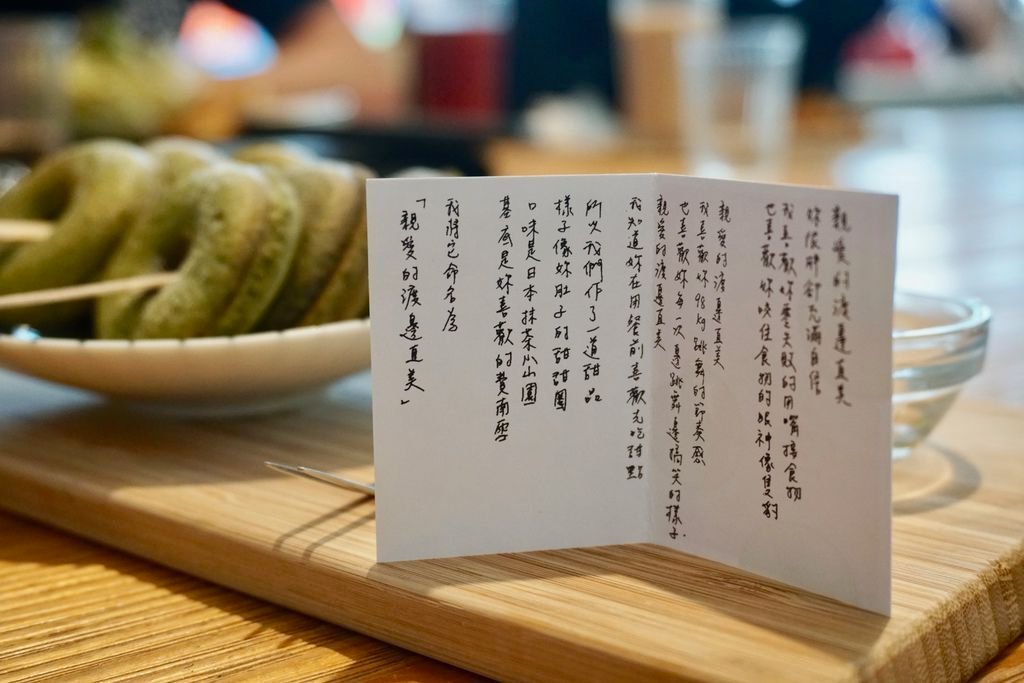 親愛的渡邊直美
妳很胖卻充滿自信
我喜歡妳要失敗的用嘴接食物
也喜歡妳咬住食物的眼神像隻豹
親愛的渡邊直美
我喜歡妳98kg跳舞的節奏感
也喜歡妳每一次邊跳舞邊搞笑的樣子.
親愛的渡邊直美
我知道妳在用餐前喜歡先吃甜點
所以我們作了一道甜品
樣子像妳肚子的甜甜圈
口味是日本抹茶小山園
基底是妳喜歡的費南雪
我將它命名為
「親愛的渡邊直美」